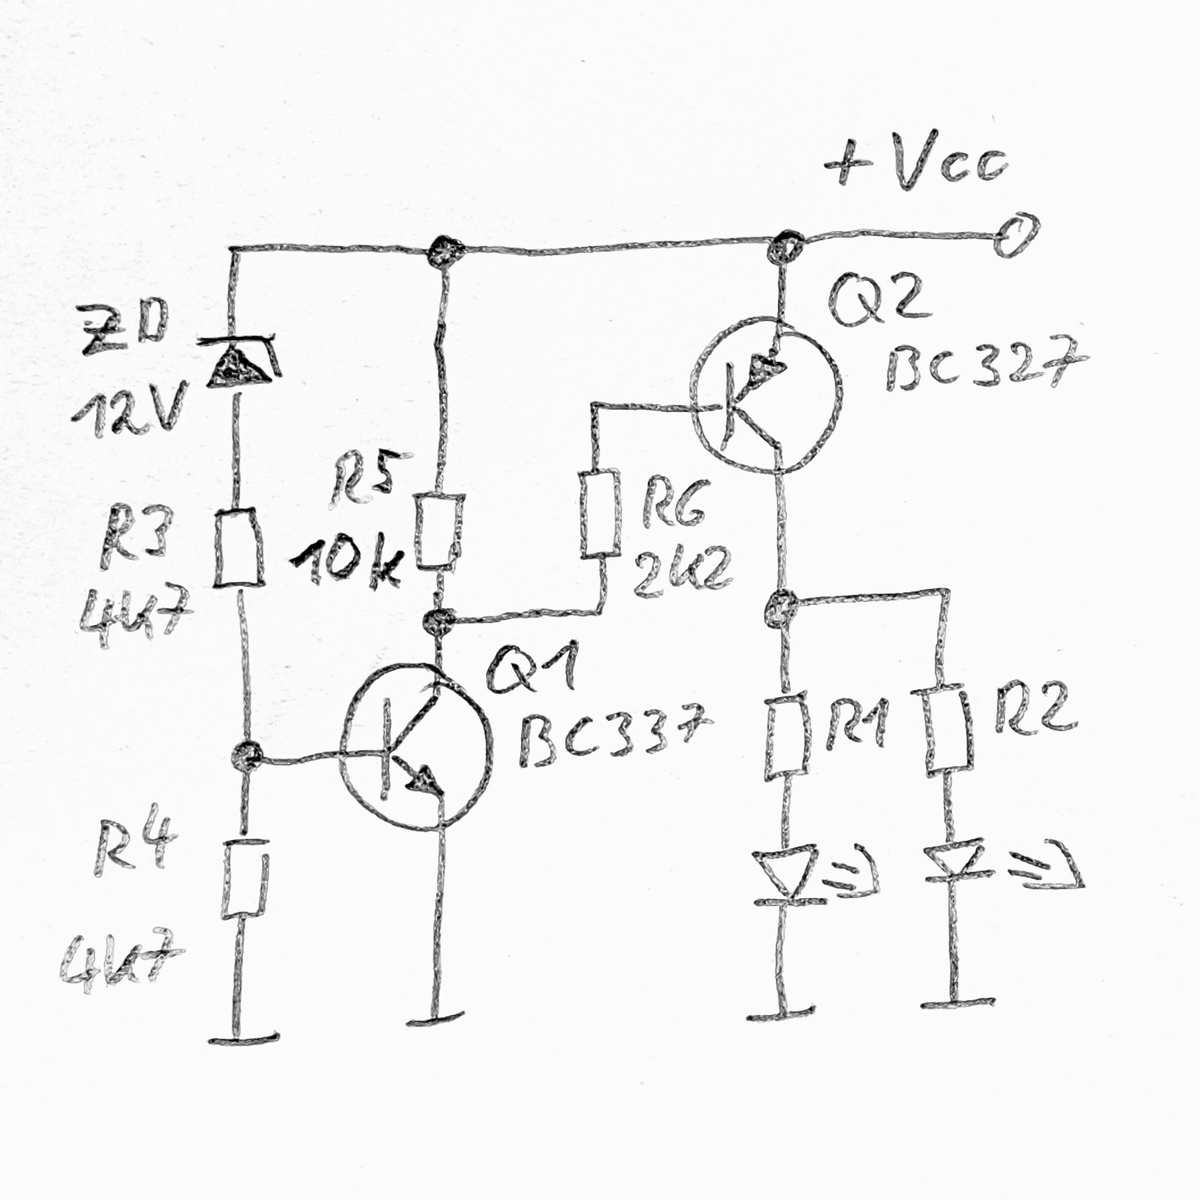 +Vcc
Q2
BC327
ZD
12V
R5
10k
R3
4k7
R6
2k2
Q1
BC337
R1
R2
R4
4k7